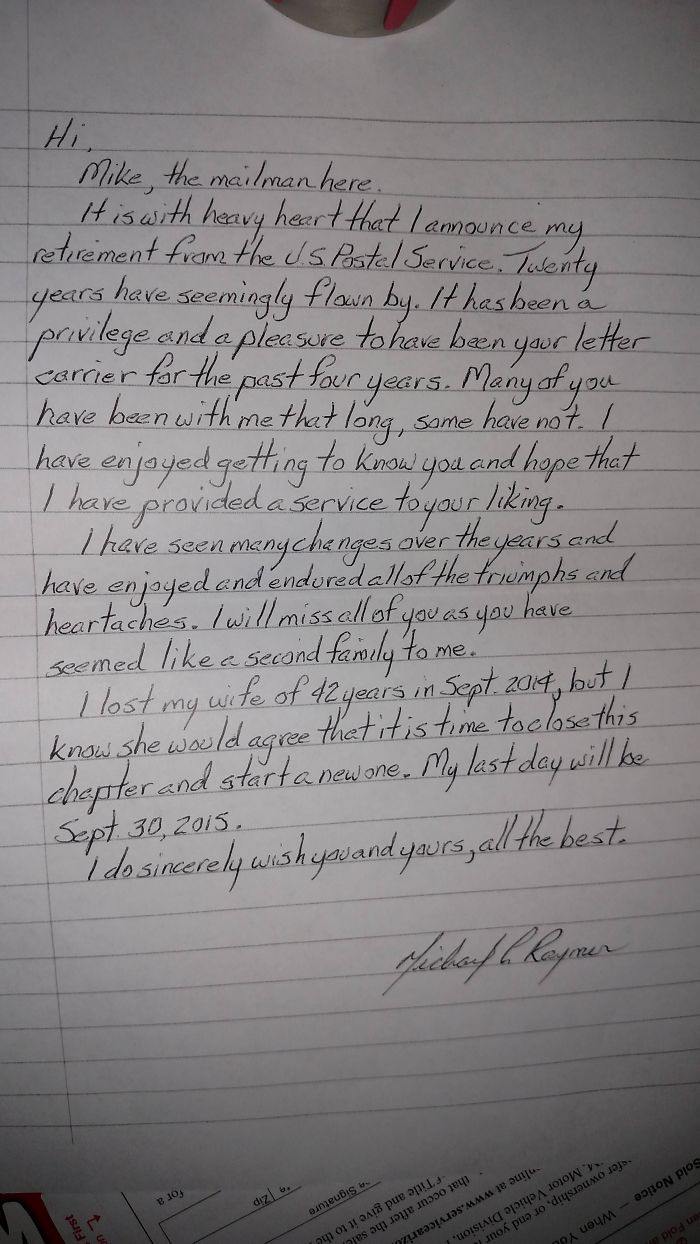 Hi,
Mike, the mailman here.
It is with heavy heart that I announce my
retirement from the U.S Postal Service. Twenty
years have seemingly flown by. It has been a
privilege and a pleasure to have been your letter
carrier for the past four years. Many of you
have been with me that long, some have not. I
have enjoyed getting to know you and hope that
I have provided a service to your liking.
I have seen many changes over the years and
have enjoyed and endured all of the triumphs and
heartaches. I will miss all of you as you have
seemed like a second family to me.
I lost my wife of 42 years in Sept. 2014, but I
know she would agree that it is time to close this
chapter and start a new one. My last day will be
Sept. 30, 2015.
I do sincerely wish you and yours, all the best.
Michael Raymer
Sold Notice
When You
or your end
Motor Vehicle Division.
nline at www.servicearizo
that occur after the sale
Title and give it to the
Signature
Zip
for a
First